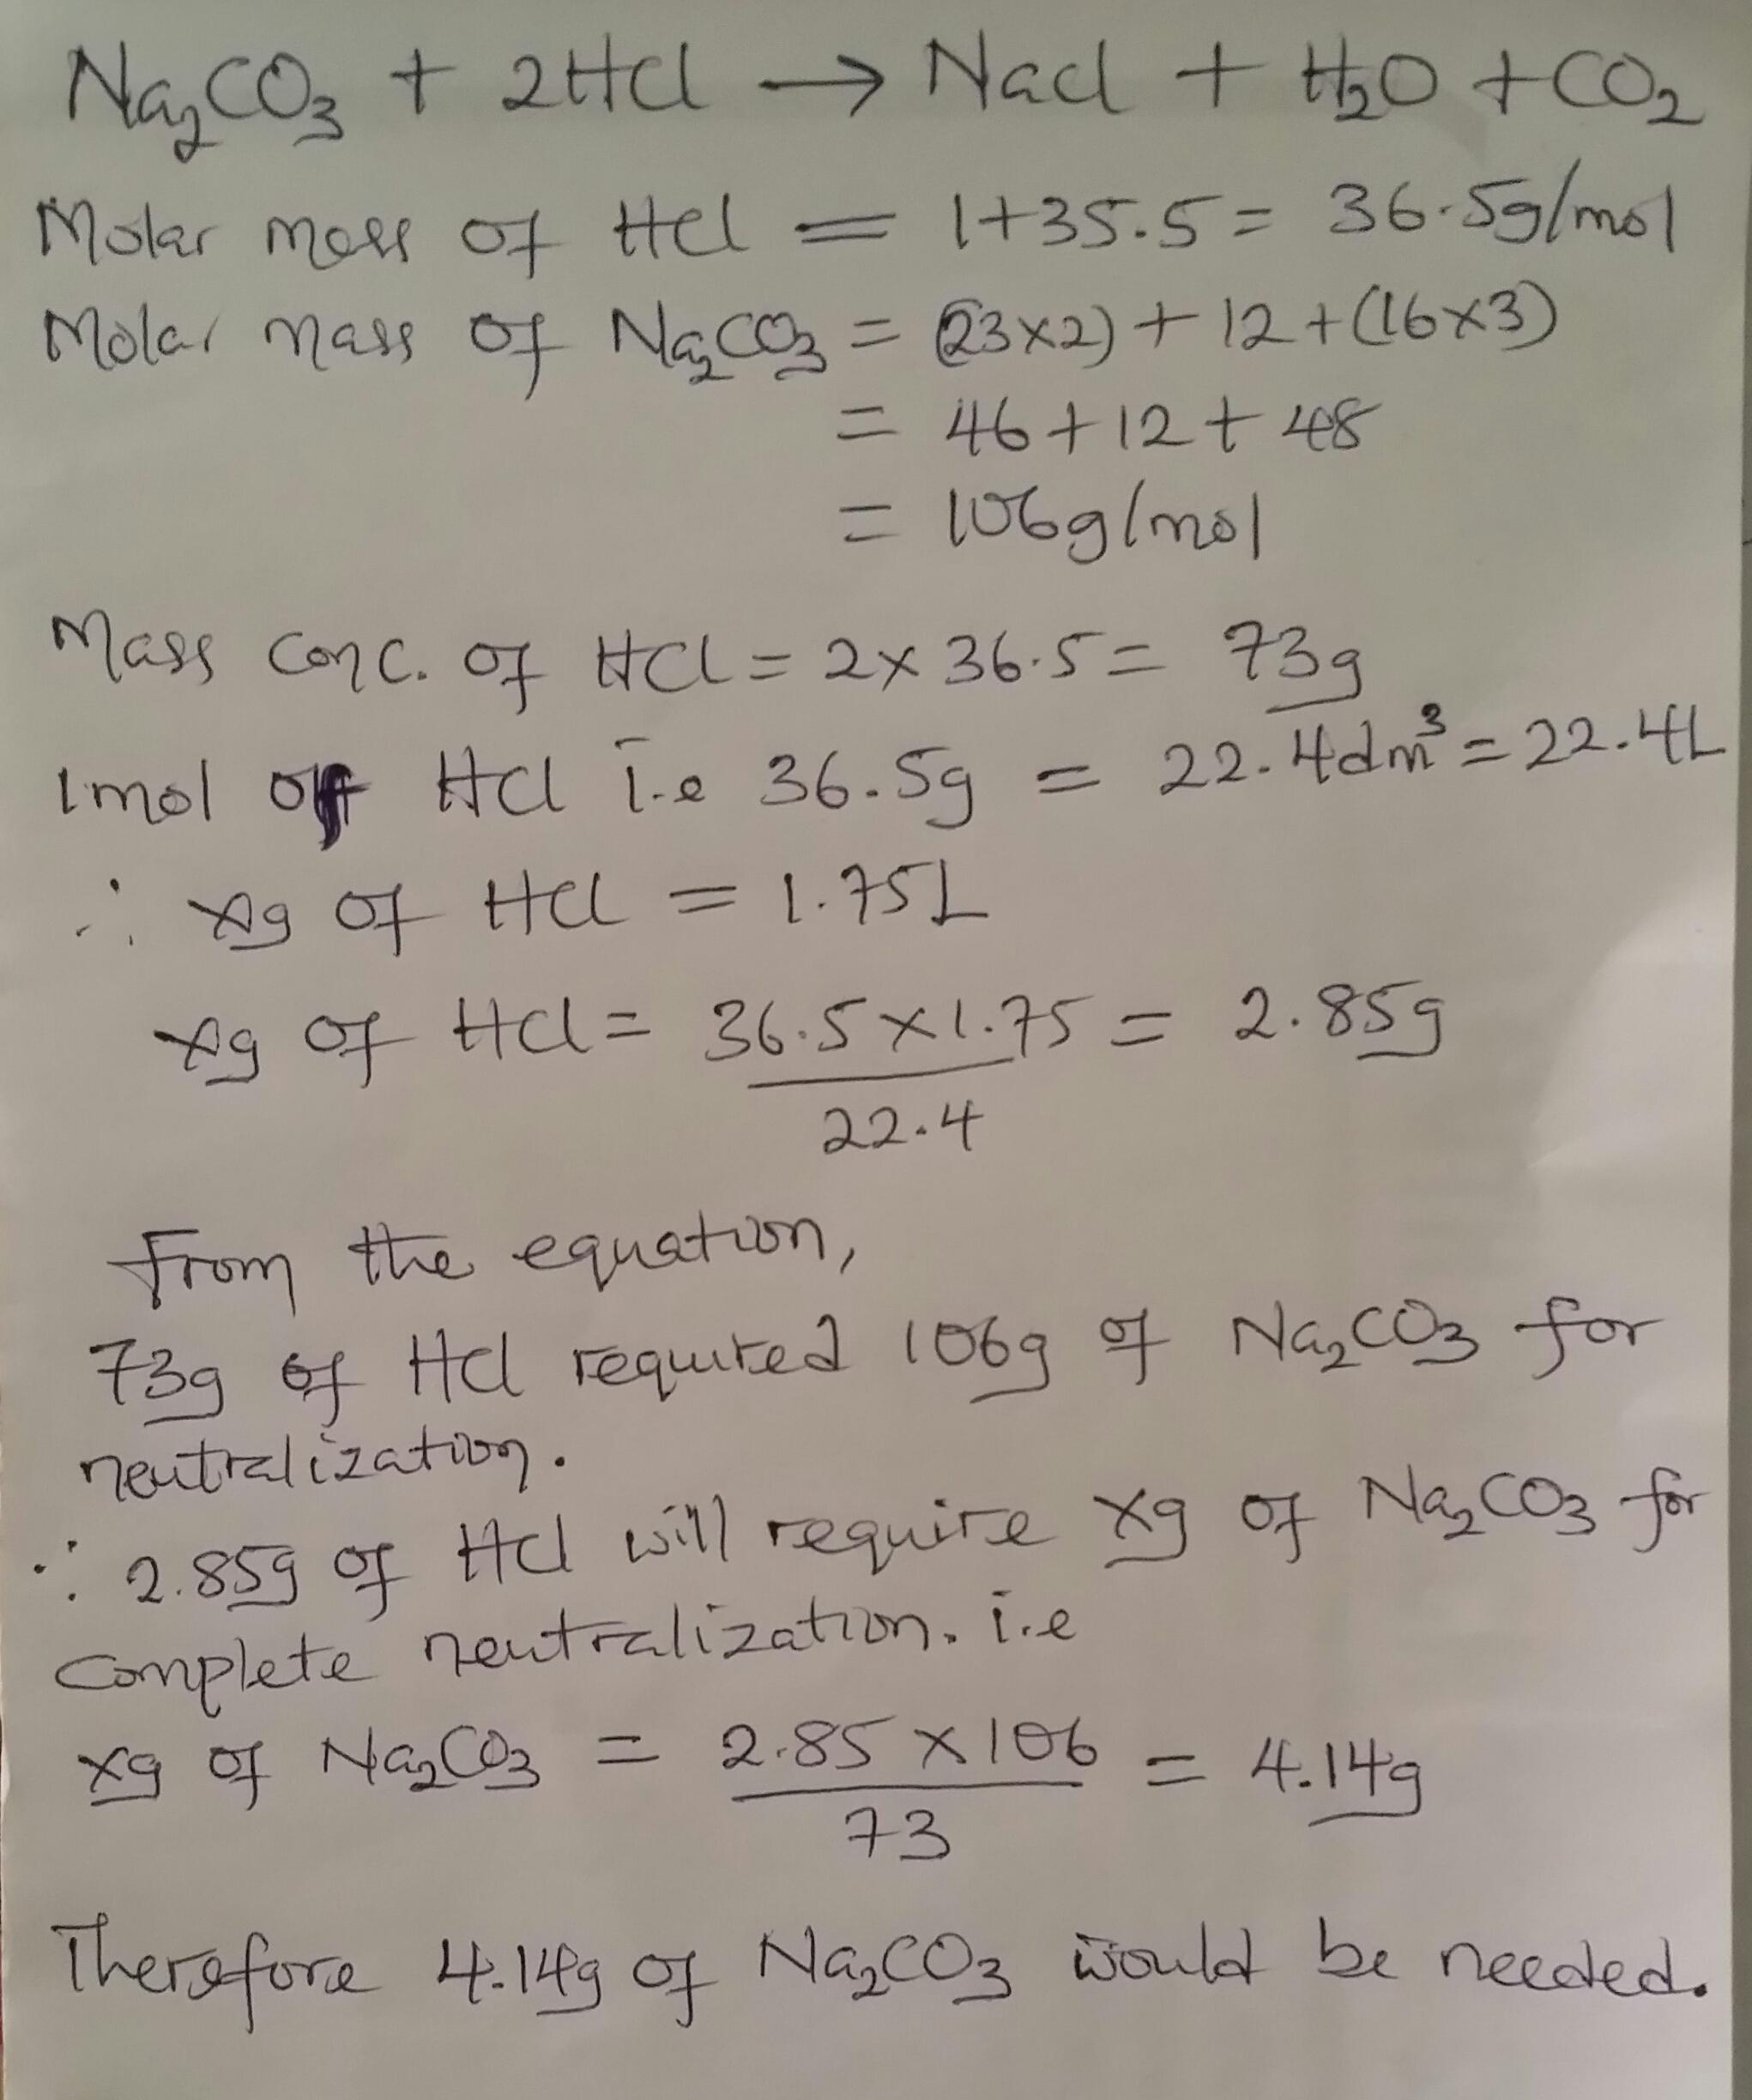 Na₂CO₃ + 2HCl → NaCl + H₂O + CO₂
Molar mass of HCl = 1+35.5 = 36.5g/mol
Molar mass of Na₂CO₃ = (23x2) + 12 + (16x3)
= 46 + 12 + 48
= 106g/mol
Mass conc. of HCl = 2x 36.5 = 73g
1mol of HCl i.e 36.5g = 22.4dm³ = 22.4L
∴ xg of HCl = 1.75L
xg of HCl = 36.5 x 1.75 = 2.85g
22.4
From the equation,
73g of HCl required 106g of Na₂CO₃ for
neutralization.
∴ 2.85g of HCl will require xg of Na₂CO₃ for
complete neutralization. i.e
xg of Na₂CO₃ = 2.85 x 106 = 4.14g
73
Therefore 4.14g of Na₂CO₃ would be needed.